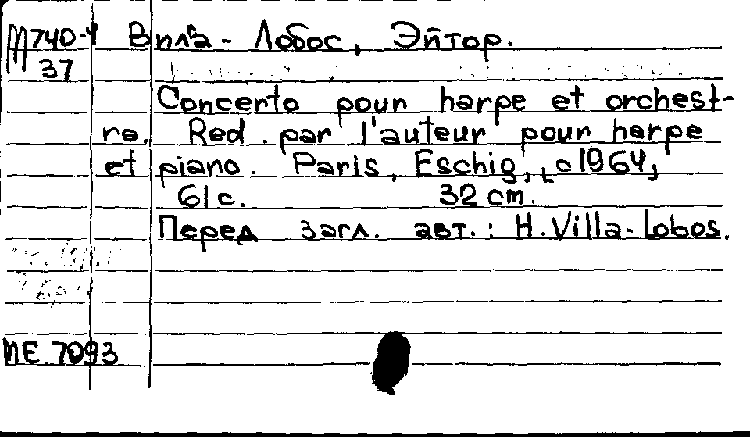 М740-4 Вила-Лобос, Эйтор.
37
Concerto pour harpe et orchest-
re. Red. par l'auteur pour harpe
et piano. Paris, Eschig, [c1964]
61 с. 32 cm.
Перед загл. авт.: H. Villa-Lobos.
NE 7093